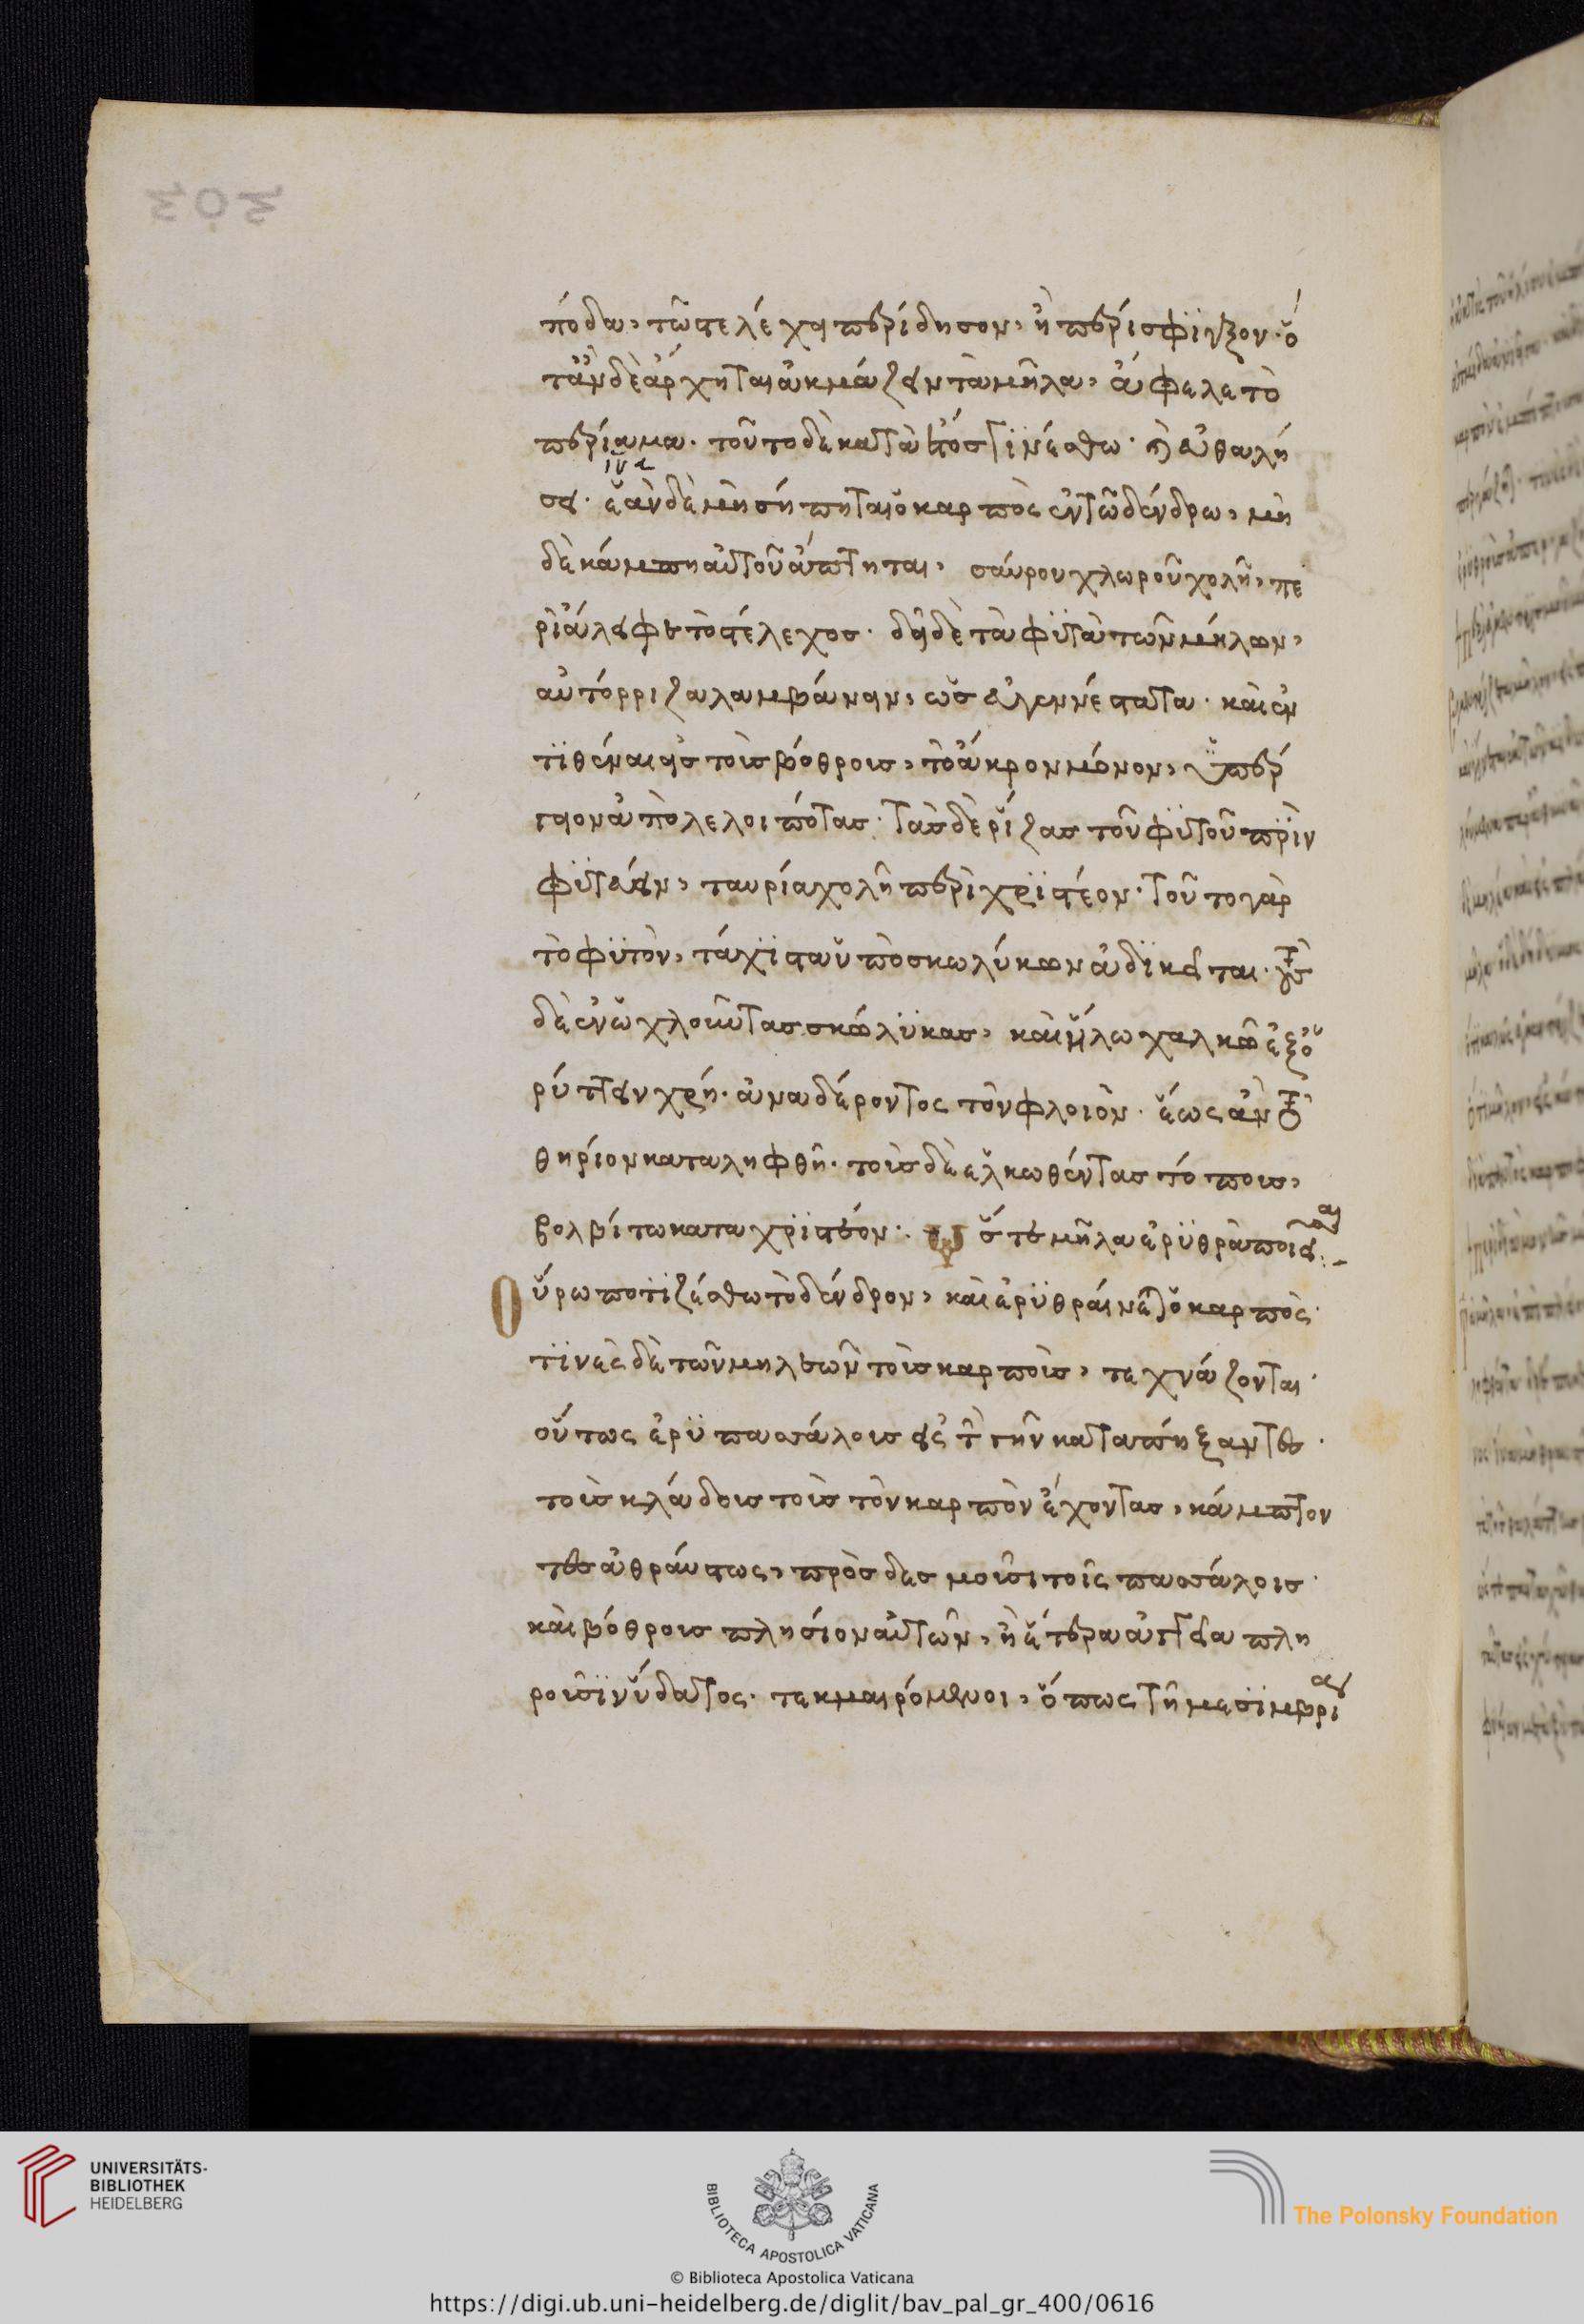 πόδα, τῶ στελέχει περίδησον, ἢ περίσφιγξον· ὅ
τἂν δὲ ἄρχηται ἀκμάζειν τὰ μῆλα, ἄφελε τὸ
περίαμμα. τοῦτο δὲ κατὰ ἔτος γινέσθω· καὶ εὐθαλή
σει· ἐὰν δὲ μὴ σήπηται ὁ καρπὸς ἐν τῶ δένδρω, μη
δὲ κάμπη αὐτοῦ ἅπτηται, σαύρου χλωροῦ χολῆ, πε
ρὶάλειφε τὸ στέλεχος. δεῖ δὲ τὰ φυτὰ τῶν μήλων,
αὐτόρριζα λαμβάνειν, ὡς εὐγεννέστατα. καὶ ἐν
τιθέναι εἰς τοὺς βόθρους, τὸ ἄκρον μόνον, ὑπὲρ
γειον ἀπολελοιπότας. τὰς δὲ ῥίζας τοῦ φυτοῦ πρὶν
φυτεύειν, ταυρία χολῆ περιχριστέον. τοῦτο γὰρ
τὸ φυτὸν, τάχιστα ὑπὸ σκωλύκων ἀδικεῖται. τοὺς
δὲ ἐνωχλοῦντας σκώλυκας, καὶ ἥλω χαλκῶ ἐξο
ρύττειν χρή. ἀναδέροντος τὸν φλοιὸν. ἕως ἂν τὸ
θηρίον καταληφθῆ. τοὺς δὲ ἑλκωθέντας τόπους,
βολβίτω καταχριστέον. ὥστε μῆλα ἐρυθρὰ ποιῆσαι
Οὔρω ποτιζέσθω τὸ δένδρον, καὶ ἐρυθραίνεται ὁ καρπὸς.
τινὲς δὲ τῶν μηλεῶν τοὺς καρποὺς, τεχνάζονται
οὕτως ἐρυ πασσάλους εἰς τὴν γῆν καταπήξαντες.
τοὺς κλάδους τοὺς τὸν καρπὸν ἔχοντας, κάμπτον
τες ἀθραύστως, πρὸσδεσμοῦσι τοῖς πασσάλοις.
καὶ βόθρους πλησίον αὐτῶν, ἢ ἕτερα ἀγγεῖα πλη
ροῦσιν ὕδατος. τεκμαιρόμενοι, ὅπως τῆ μεσημβρι
UNIVERSITÄTS-
BIBLIOTHEK
HEIDELBERG
BIBLIOTECA APOSTOLICA VATICANA
The Polonsky Foundation
© Biblioteca Apostolica Vaticana
https://digi.ub.uni-heidelberg.de/diglit/bav_pal_gr_400/0616